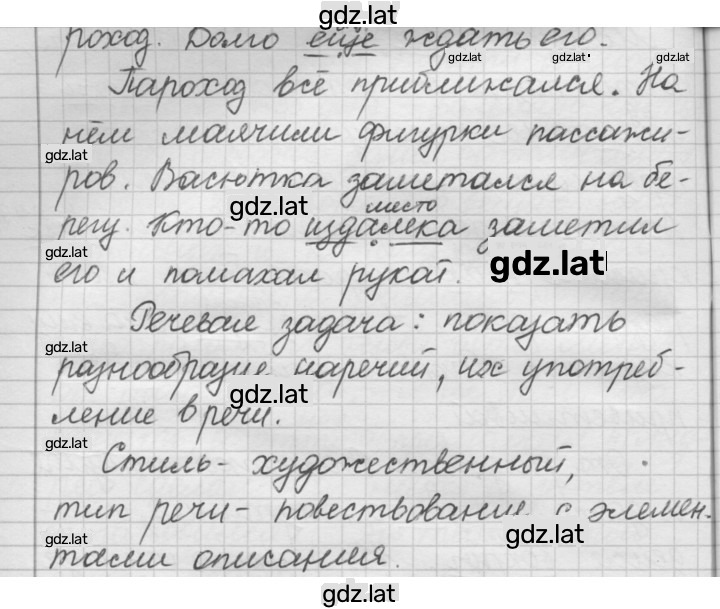 gdz.lat
роход. Долго ещё ждать его.
gdz.lat gdz.lat gdz.lat
Пароход всё приближался. На
нём маячили фигурки пассажи-
gdz.lat
ров. Васютка заметался на бе-
gdz.lat место
регу. Кто-то издалека заметил
его и помахал рукой. gdz.lat
Речевая задача: показать
gdz.lat
разнообразие наречий, их употреб-
gdz.lat
ление в речи.
gdz.lat
Стиль- художественный,
тип речи- повествование с элемен-
gdz.lat gdz.lat
тами описания.
gdz.lat